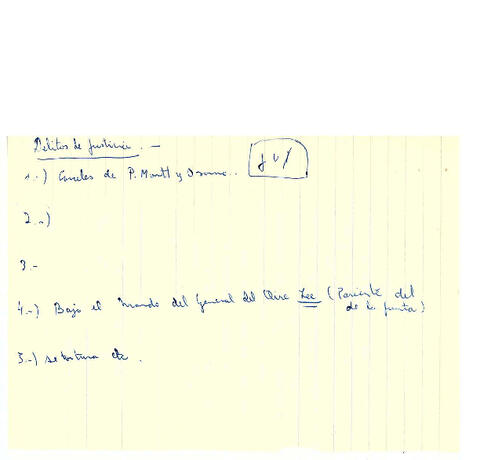 Delitos de Justicia. -
1.-) Canales de P. Montt y Osorno..
2.-)
3.-
4.-) Bajo el mando del General del Aire Lee (Pariente del
de la Junta)
5.-) se tortura etc.